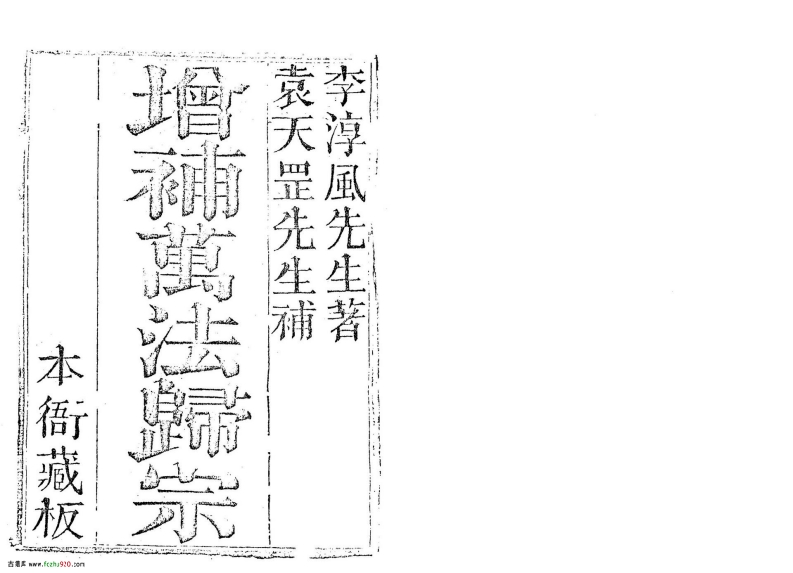 李淳風先生著
袁天罡先生補
增補萬法歸宗
本衙藏板
www.fczhu920.com